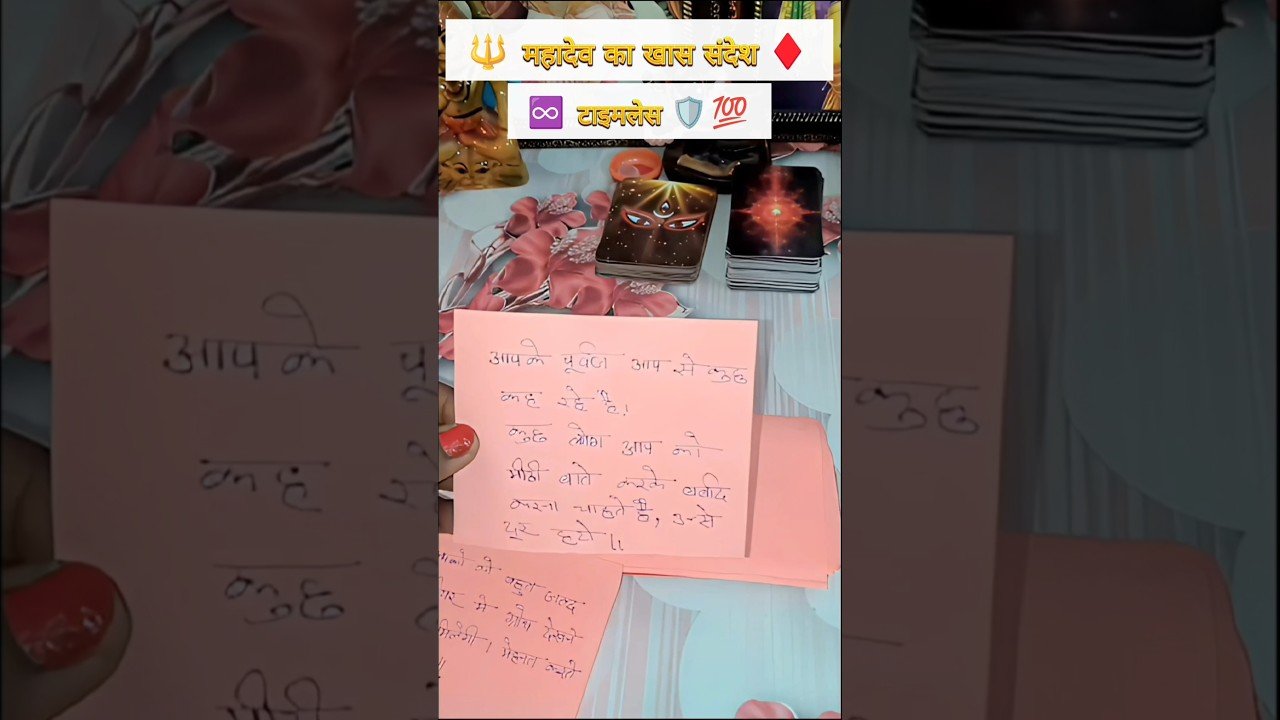 🔱 महादेव का खास संदेश ♦️
♾️ टाइमलेस 🛡️ 💯
आपके पूर्वज आप से कुछ
कह रहे है।
कुछ लोग आप को
मीठी बाते करके बर्बाद
करना चाहते है, उनसे
दूर हटो॥
को बहुत जल्द
मे ग्रोथ देखने
मिलेगी। मेहनत करते